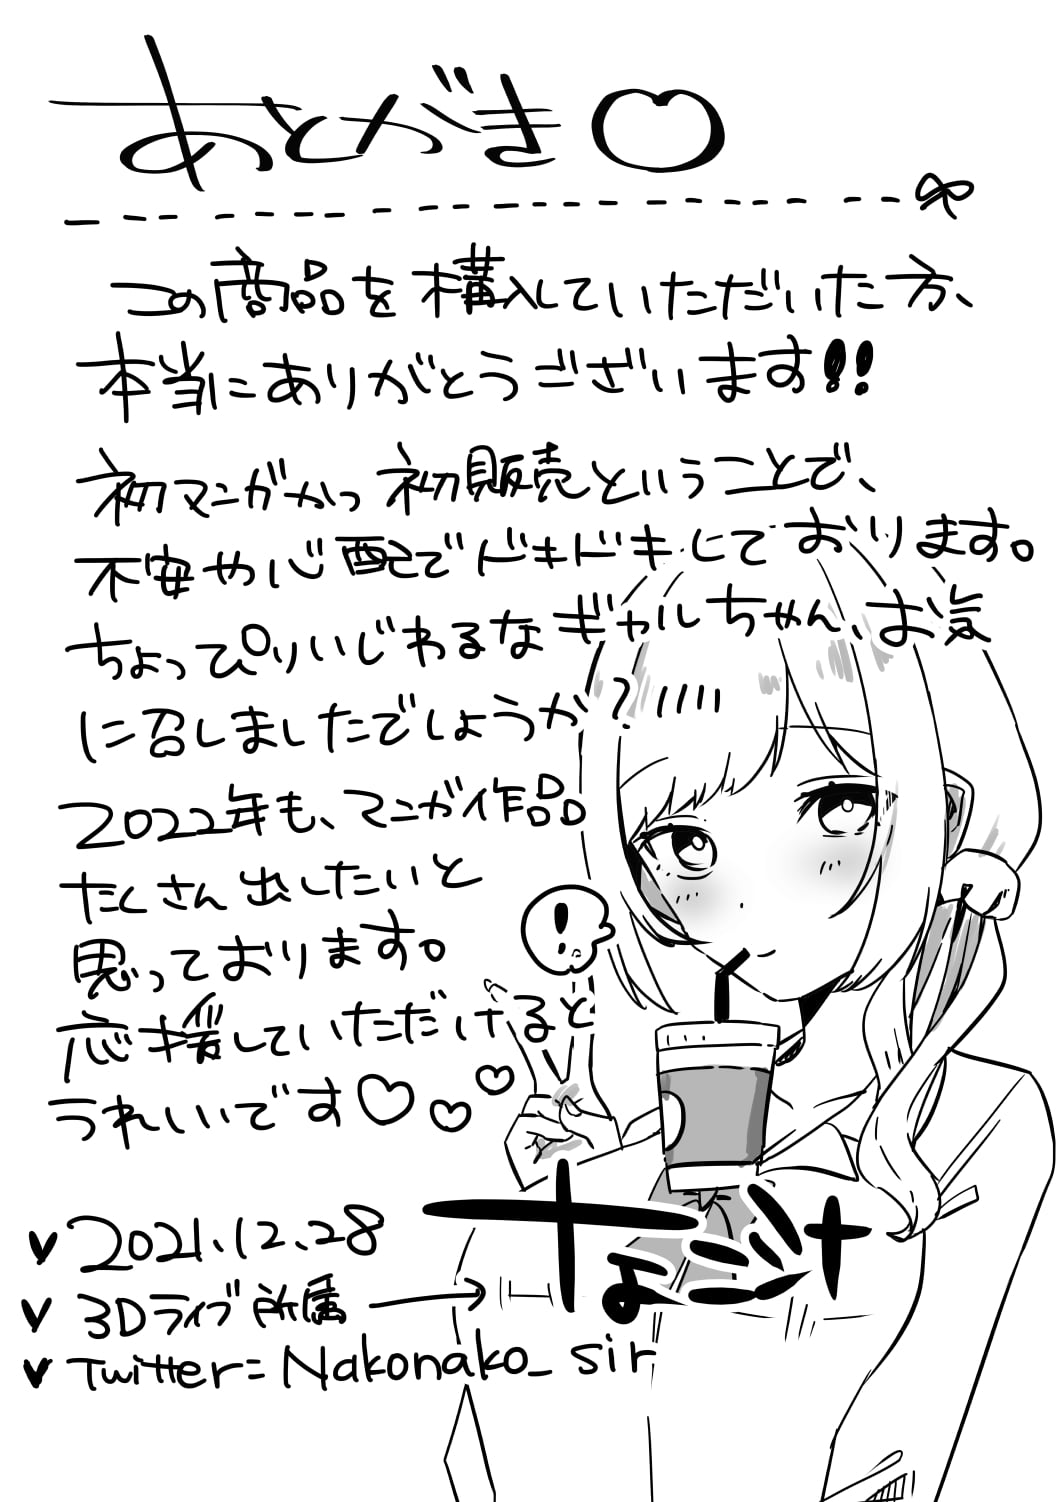 あとがき
この商品を購入していただいた方、
本当にありがとうございます!!
初マンガかつ初販売ということで、
不安や心配でドキドキしております。
ちょっぴりいじわるなギャルちゃん、お気
に召しましたでしょうか?
2022年も、マンガ作品
たくさん出したいと
思っております。
応援していただけると
うれしいです♡♡♡
!
♥2021.12.28
♥3Dライブ所属→
♥Twitter=Nakonako_sir